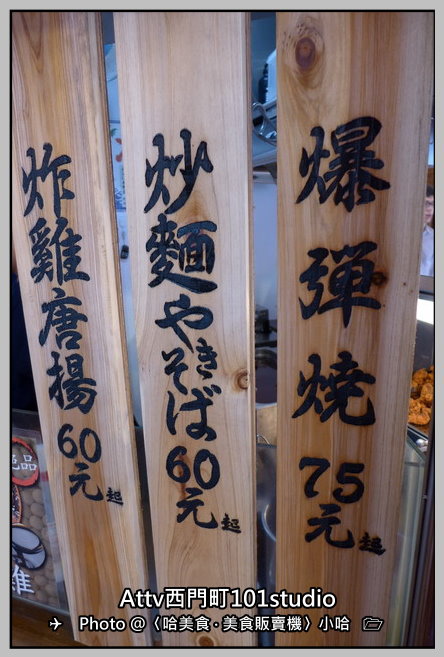 爆弾焼
75元起
炒麵やきそば
60元起
炸雞唐揚
60元起
絶品
Attv西門町101studio
Photo @〈哈美食·美食販賣機〉小哈